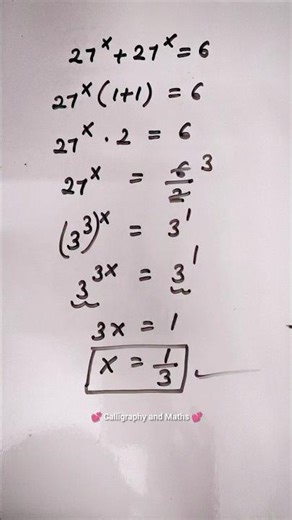 27^x + 27^x = 6
27^x (1+1) = 6
27^x · 2 = 6
27^x = 6/2 3
(3^3)^x = 3^1
3^3x = 3^1
3x = 1
x = 1/3
💕 Calligraphy and Maths 💕